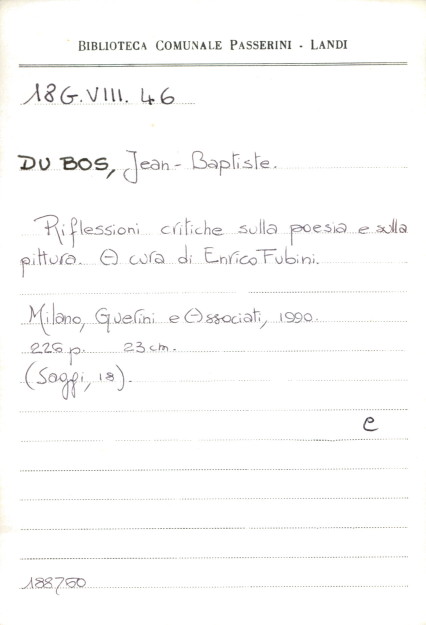 BIBLIOTECA COMUNALE PASSERINI - LANDI
18G.VIII.46
DU BOS, Jean-Baptiste.
Riflessioni critiche sulla poesia e sulla
pittura. A cura di Enrico Fubini.
Milano, Guerini e Associati, 1990.
226 p. 23 cm.
(Saggi, 18).
e
188750